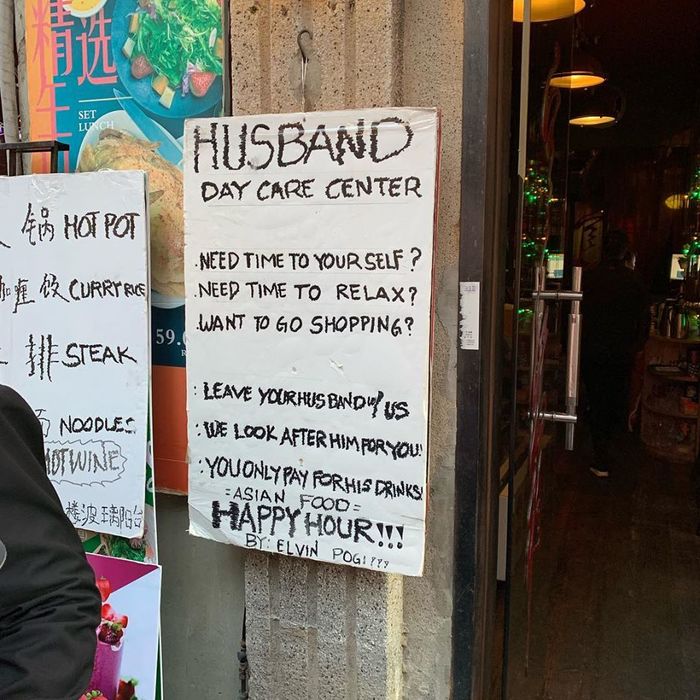 精选
精生
SET
LUNCH
锅 HOT POT
咖喱饭 CURRY RICE
排 STEAK
NOODLES
HOT WINE
楼玻璃阳台
59.
HUSBAND
DAY CARE CENTER
.NEED TIME TO YOURSELF?
.NEED TIME TO RELAX?
.WANT TO GO SHOPPING?
: LEAVE YOUR HUSBAND w/ US
: WE LOOK AFTER HIM FOR YOU!
: YOU ONLY PAY FOR HIS DRINKS!
= ASIAN FOOD =
HAPPY HOUR!!!
BY: ELVIN POGI???